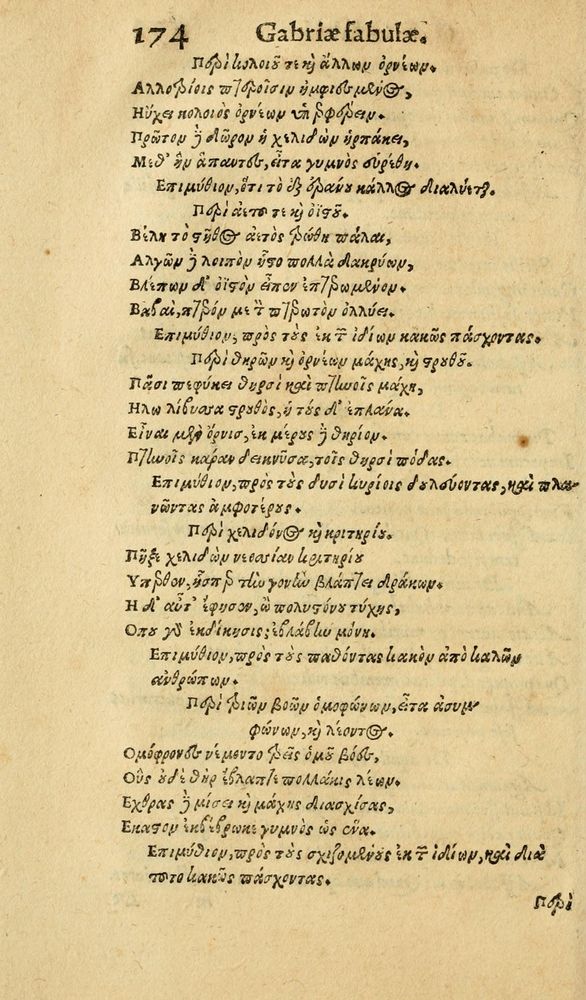 174 Gabriæ fabulæ.
Περὶ κολοιοῦ τε κỳ ἄλλων ὀρνέων.
Αλλοτρίοις πτεροῖσιν ἠμφιεσμένος,
Ηὔχει κολοιὸς ὀρνέων ὑπερφέρειν.
Πρῶτον δὲ δῶρον ἡ χελιδὼν ἡρπάκει,
Μεθ' ἣν ἅπαντες, εἶτα γυμνὸς εὑρέθη.
Επιμύθιον, ὅτι τὸ ἐξ ἐράνου κάλλος διαλύεται.
Περὶ ἀετοῦ τε κỳ ὀϊστοῦ.
Βέλει τὸ στῆθος ἀετὸς ἐτρώθη πάλαι,
Αλγῶν δὲ λοιπὸν ἧστο πολλὰ δακρύων,
Βλέπων δ' ὀϊστὸν εἶπεν ἐπτερωμένον.
Βαβαὶ, πτερόν με τὸν πτερωτὸν ὀλλύει.
Επιμύθιον, πρὸς τοὺς ἐκ τῶν ἰδίων κακῶς πάσχοντας.
Περὶ θηρῶν κỳ ὀρνέων μάχης, κỳ στρουθοῦ.
Πᾶσι πεφύκει θηρσὶ καὶ πτηνοῖς μάχη,
Ηλω λίβυσσα στρουθὸς, ἡ τοὺς δ' ἐπλάνα.
Εἶναι μὲν ὄρνις, ἐκ μέρους δὲ θηρίον.
Πτηνοῖς κάραν δεικνῦσα, τοῖς θηρσὶ πόδας.
Επιμύθιον, πρὸς τοὺς δυσὶ κυρίοις δουλεύοντας, καὶ πλα
νῶντας ἀμφοτέρους.
Περὶ χελιδόνος κỳ κριτηρίου.
Πῆξε χελιδὼν νεοσσίαν κριτηρίου
Υπερθεν, ἧσπερ τὴν γονὴν βλάπτει δράκων.
Η δ' αὖτ' ἔφησεν, ὦ πολυστόνου τύχης,
Οπου γὰρ ἐκδίκησις; ἐβλάβην μόνη.
Επιμύθιον, πρὸς τοὺς παθόντας κακὸν ἀπὸ καλῶν
ἀνθρώπων.
Περὶ τριῶν βοῶν ὁμοφώνων, εἶτα ἀσυμ
φώνων, κỳ λέοντος.
Ομόφρονες νέμοντο τρεῖς ὁμοῦ βόες,
Οὓς οὐδὲ θὴρ ἔβλαπτε πολλάκις λέων.
Εχθρας δὲ μίσει κỳ μάχης διασχίσας,
Εκαστον ἐκβέβρωκε γυμνὸς ὡς ἕνα.
Επιμύθιον, πρὸς τοὺς σχιζομένους ἐκ τῶν ἰδίων, καὶ διὰ
τοῦτο κακῶς πάσχοντας.
Περὶ